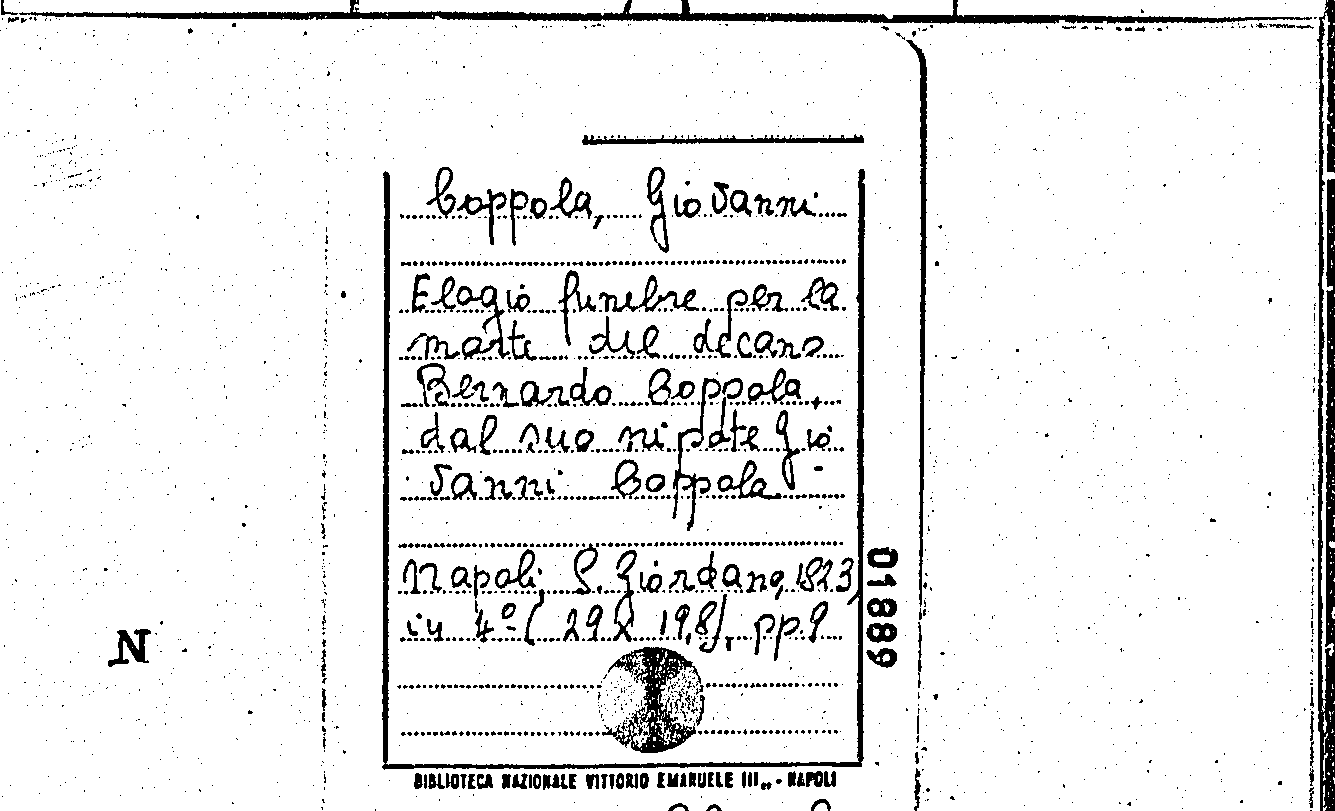 Coppola, Giovanni
Elogio funebre per la
morte del decano
Bernardo Coppola,
dal suo nipote Gio
vanni Coppola.
Napoli, S. Giordano, 1823,
in 4º (29 X 19,8), pp. 9
01889
N
BIBLIOTECA NAZIONALE VITTORIO EMANUELE III„ - NAPOLI